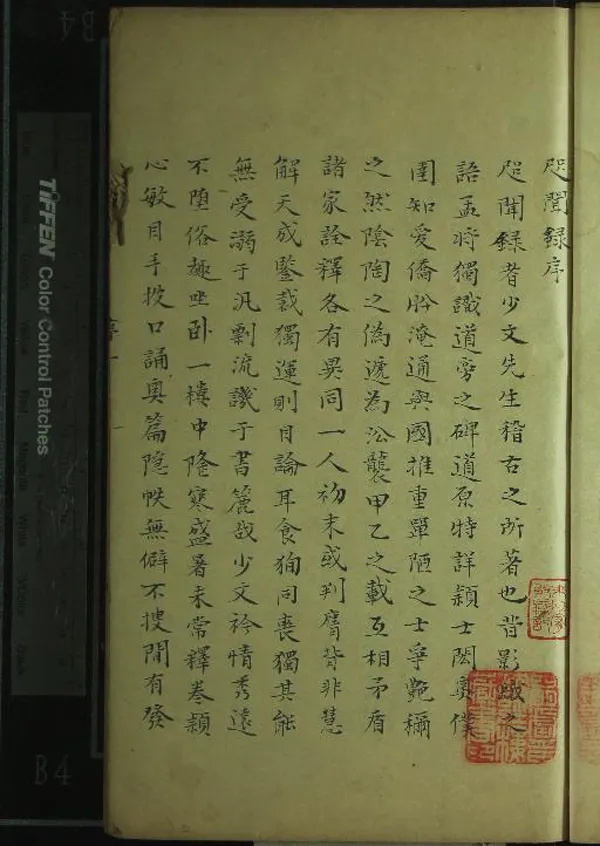 咫聞録序
咫聞録者少文先生稽古之所著也昔影娥之
語孟將獨識道旁之碑道原特詳穎士閎奧僕
圉知愛僑肸淹通與國推重單陋之士爭艷稱
之然陰陶之僞遞為沿襲甲乙之載互相矛盾
諸家詮釋各有異同一人初末或判膺背非慧
解天成鑒裁獨運則目論耳食狥同喪獨其能
無受溺于汎剽流譏于書簏哉少文衿情秀遠
不墮俗趣坐卧一樓中隆寒盛暑未常釋巻穎
心敏目手披口誦奧篇隱帙無僻不搜間有發
TIFFEN Color Control Patches
B4